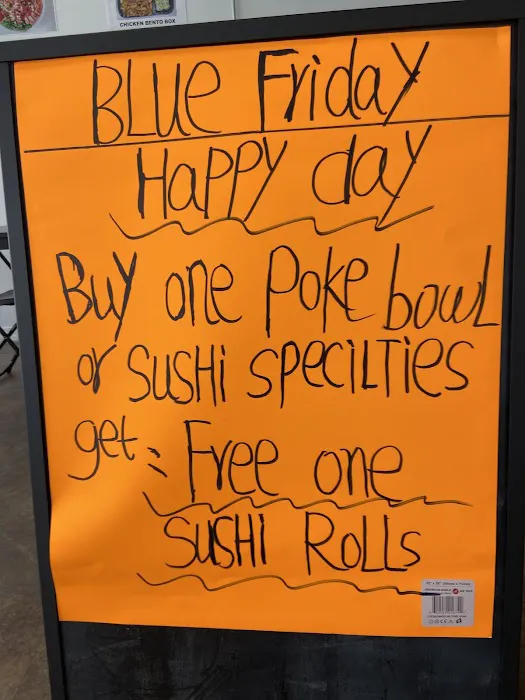 CHICKEN BENTO BOX
BLUe Friday
Happy day
Buy one Poke bowL
or SUSHi SPeciLTies
get: Free one
SUSHI RoLLs